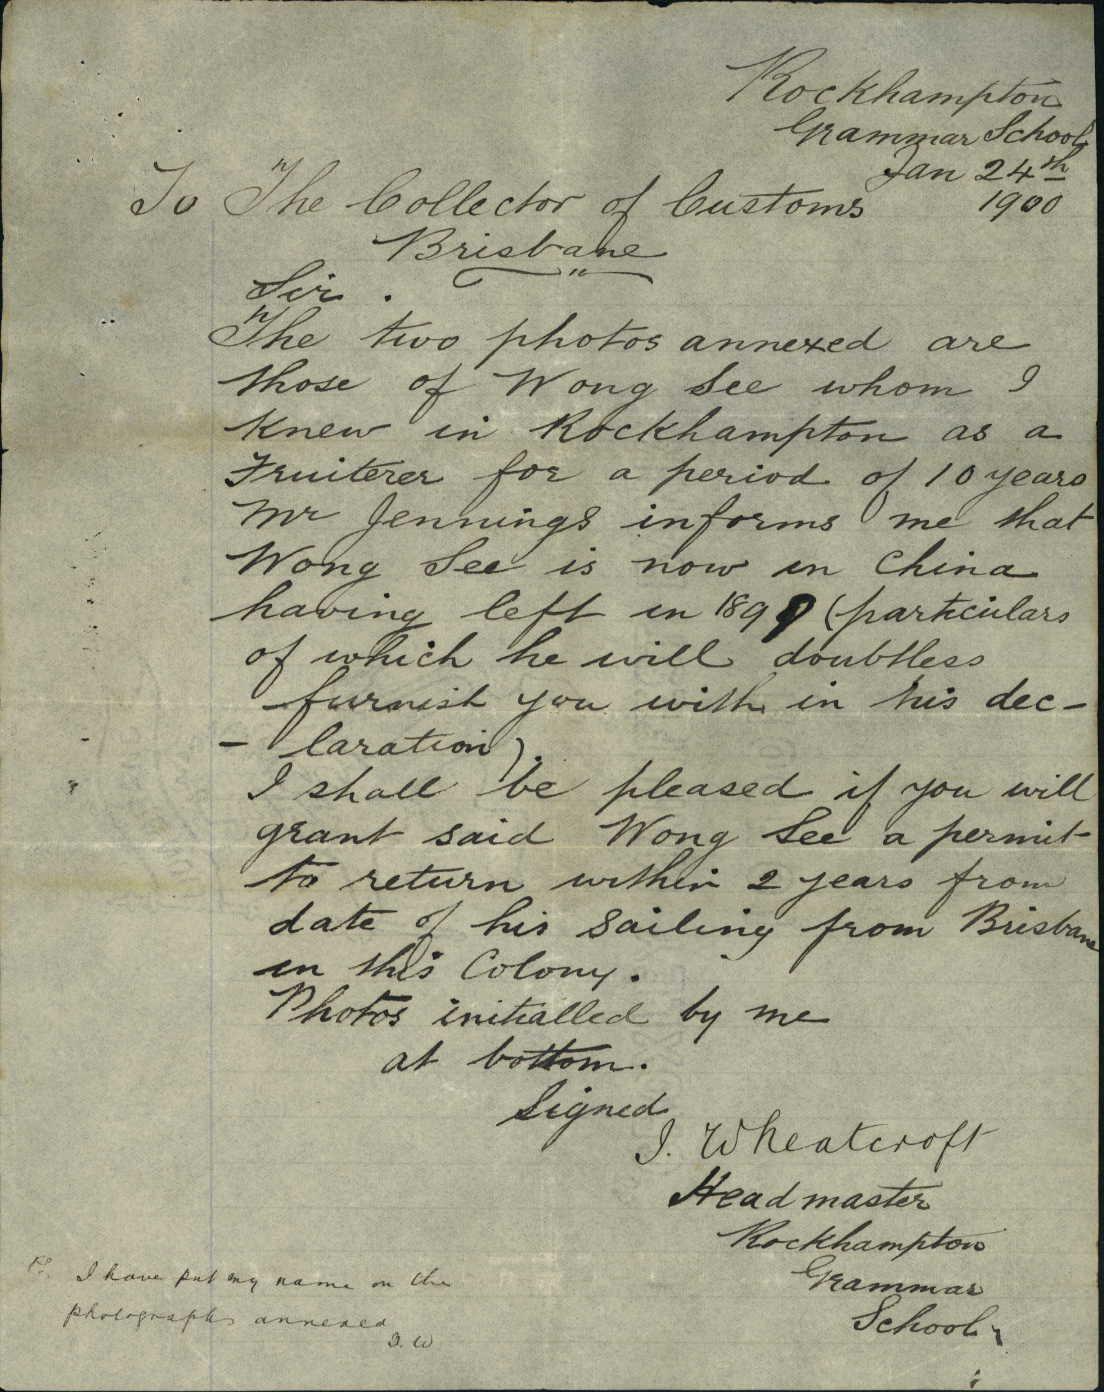 Rockhampton
Grammar School
Jan 24th
1900
To The Collector of Customs
Brisbane
Sir.
The two photos annexed are
those of Wong See whom I
knew in Rockhampton as a
Fruiterer for a period of 10 years
Mr Jennings informs me that
Wong See is now in China
having left in 1899 (particulars
of which he will doubtless
furnish you with in his dec-
- laration).
I shall be pleased if you will
grant said Wong See a permit
to return within 2 years from
date of his sailing from Brisbane
in this Colony.
Photos initialled by me
at bottom.
Signed
J. Wheatcroft
Head master
Rockhampton
Grammar
School
I have put my name on the
photographs annexed
J. W